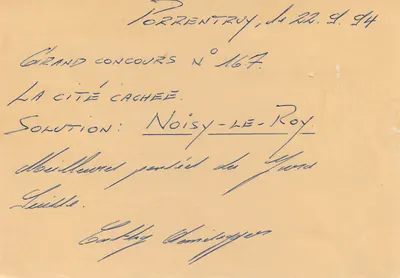 PORRENTRUY, le 22.9.94
GRAND CONCOURS N° 167.
LA CITÉ CACHÉE.
SOLUTION: NOISY-LE-ROY
Meilleures pensées du Jura
Suisse.